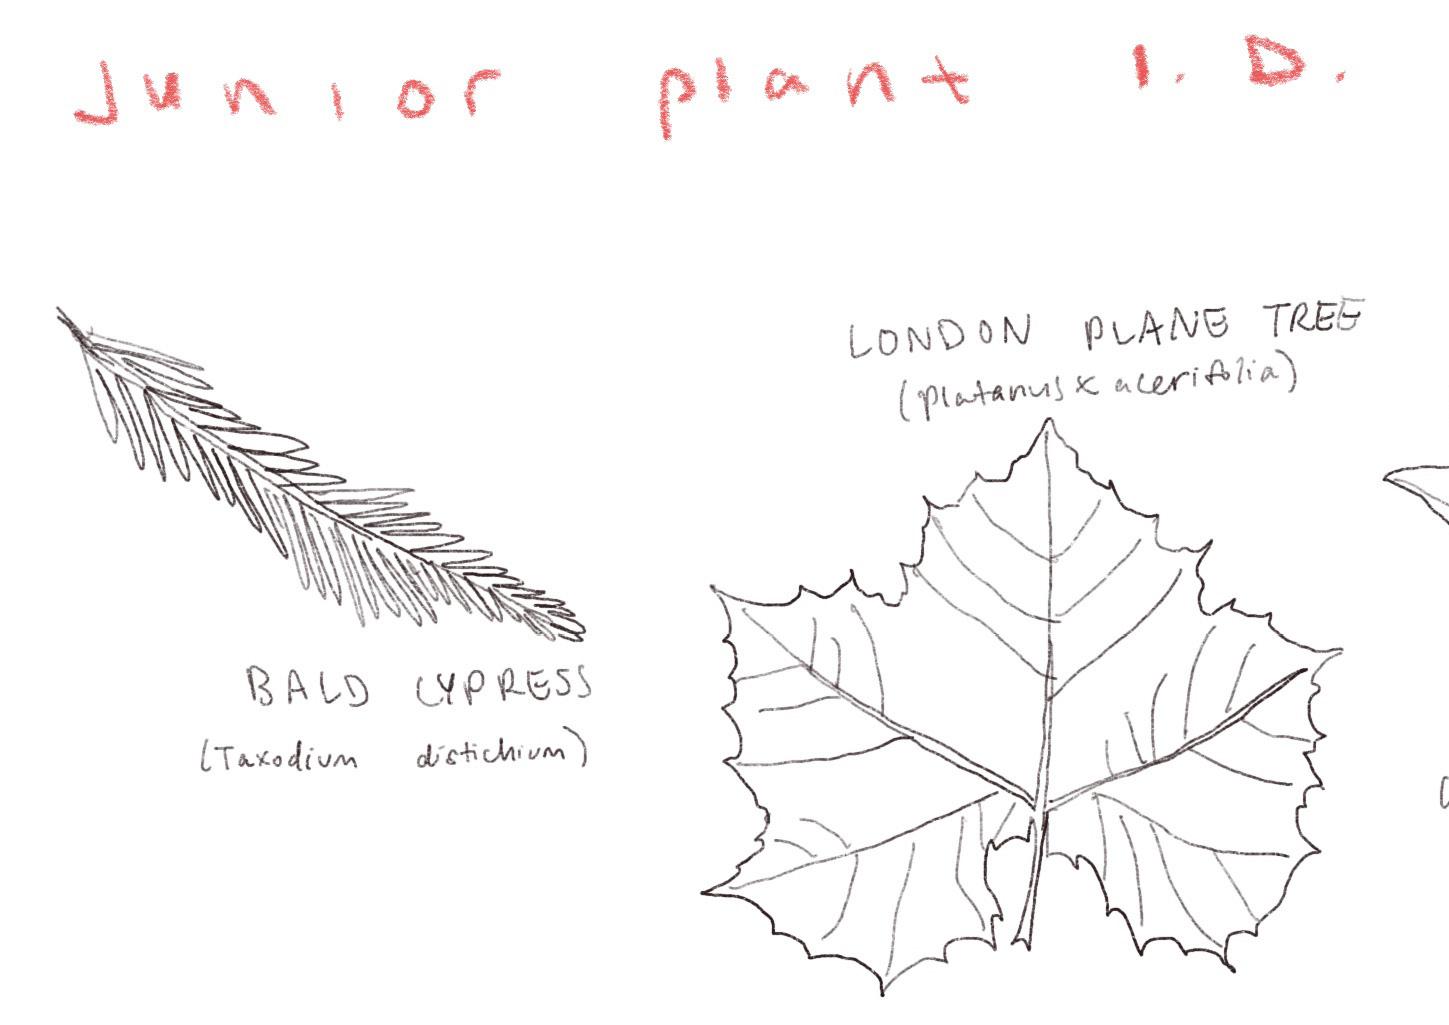 Junior plant I.D.
LONDON PLANE TREE
(platanus x acerifolia)
BALD CYPRESS
(Taxodium distichium)